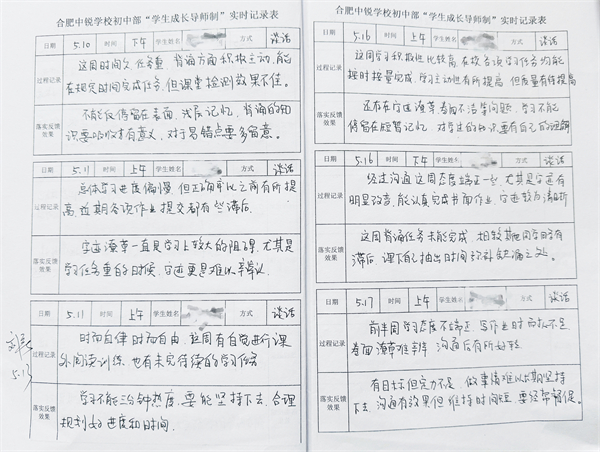 合肥中锐学校初中部“学生成长导师制”实时记录表
日期 5.10 时间 下午 学生姓名 方式 谈话
过程记录
这周时间欠任务重 背诵方面积极主动,能
在规定时间完成任务,但课堂检测效果不佳。
落实反馈
效果
不能仅停留在表面,浅层记忆,背诵的知
识要吸收才有意义,对于易错点要多留意。
日期 5.11 时间 上午 学生姓名 方式 谈话
过程记录
总体学习进度偏慢,但正确率比之前有所提
高,近期各项作业提交都有些滞后.
落实反馈
效果
字迹潦草一直是学习上较大的阻碍,尤其是
学习任务重的时候,字迹更是难以辨认.
日期 5.11 时间 上午 学生姓名 方式 谈话
过程记录
时而自律时而自由,这周有自觉进行课
外阅读训练,也有未完待续的学习任务
5.13
落实反馈
效果
学习不能三分钟热度,要能坚持下去,合理
规划好进度和时间.
合肥中锐学校初中部“学生成长导师制”实时记录表
日期 5.16 时间 上午 学生姓名 方式 谈话
过程记录
这周学习积极性比较高,在校各项学习任务均能
按时按量完成,学习主动性有所提高,但质量有待提高
落实反馈
效果
还存在字迹潦草,卷面不洁等问题,学习不能
停留在短暂记忆,对学过的知识要有自己的理解
日期 5.16 时间 下午 学生姓名 方式 谈话
过程记录
经过沟通这周态度端正一些,尤其是字迹有
明显改善,能认真完成书面作业,字迹较为清晰
落实反馈
效果
这周背诵任务未能完成,相较其他同学略有
滞后,课下自己抽出时间弥补缺漏之处.
日期 5.17 时间 上午 学生姓名 方式 谈话
过程记录
前半周学习态度不端正,写作业时
卷面潦草难辨,沟通后有所好转
落实反馈
效果
有目标但定力不足,做事情难以长期坚持
下去,沟通有效果但维持时间短,要经常督促.